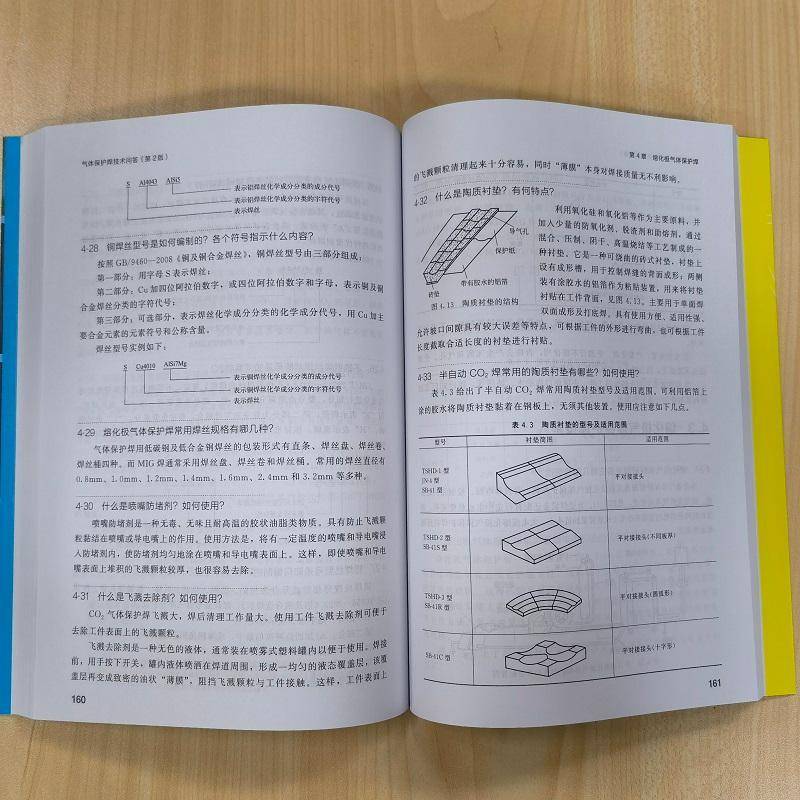 气体保护焊技术问答（第2版）
S Al4043 AlSi5
表示铝焊丝化学成分分类的成分代号
表示铝焊丝化学成分分类的字符代号
表示焊丝
4-28 铜焊丝型号是如何编制的？各个符号指示什么内容？
按照GB/9460—2008《铜及铜合金焊丝》，铜焊丝型号由三部分组成：
第一部分：用字母S表示焊丝；
第二部分：Cu加四位阿拉伯数字，或四位阿拉伯数字和字母，表示铜及铜
合金焊丝分类的字符代号；
第三部分：可选部分，表示焊丝化学成分分类的化学成分代号，用Cu加主
要合金元素的元素符号和公称含量。
焊丝型号实例如下：
S Cu4010 AlSi7Mg
表示铜焊丝化学成分分类的成分代号
表示铜焊丝化学成分分类的字符代号
表示焊丝
4-29 熔化极气体保护焊常用焊丝规格有哪几种？
气体保护焊用低碳钢及低合金钢焊丝的包装形式有直条、焊丝盘、焊丝卷、
焊丝桶四种。而MIG焊通常采用焊丝盘、焊丝卷和焊丝桶。常用的焊丝直径有
0.8mm、1.0mm、1.2mm、1.4mm、1.6mm、2.4mm和3.2mm等多种。
4-30 什么是喷嘴防堵剂？如何使用？
喷嘴防堵剂是一种无毒、无味且耐高温的胶状油脂类物质。具有防止飞溅颗
粒黏结在喷嘴或导电嘴上的作用。使用方法是，将有一定温度的喷嘴和导电嘴浸
入防堵剂内，使防堵剂均匀地涂在喷嘴和导电嘴表面上。这样，即使喷嘴和导电
嘴表面上堆积的飞溅颗粒较厚，也很容易去除。
4-31 什么是飞溅去除剂？如何使用？
CO₂气体保护焊飞溅大，焊后清理工作量大。使用工件飞溅去除剂可便于
去除工件表面上的飞溅颗粒。
飞溅去除剂是一种无色的液体，通常装在喷雾式塑料罐内以便于使用。焊接
前，用于按下开关，罐内液体喷洒在焊道周围，形成一均匀的液态覆盖层，该覆
盖层再变成致密的油状“薄膜”，阻挡飞溅颗粒与工件接触。这样，工件表面上
160
第4章 熔化极气体保护焊
的飞溅颗粒清理起来十分容易，同时“薄膜”本身对焊接质量无不利影响。
4-32 什么是陶质衬垫？有何特点？
导气孔
保护纸
带有胶水的铝箔
砖垫
图4.13 陶质衬垫的结构
利用氧化硅和氧化铝等作为主要原料，并
加入少量的防氧化剂、脱渣剂和助熔剂，通过
混合、压制、阴干、高温烧结等工艺制成的一
种衬垫。它是一种可绕曲的砖式衬垫，衬垫上
设有成形槽，用于控制焊缝的背面成形；两侧
装有涂胶水的铝箔作为粘贴装置，用来将衬垫
衬贴在工件背面，见图4.13。主要用于单面焊
双面成形及打底焊。具有使用方便、适用性强、
允许坡口间隙具有较大误差等特点，可根据工件的外形进行弯曲，也可根据工件
长度截取合适长度的衬垫进行衬贴。
4-33 半自动CO₂焊常用的陶质衬垫有哪些？如何使用？
表4.3给出了半自动CO₂焊常用陶质衬垫型号及适用范围。可利用铝箔上
涂的胶水将陶质衬垫黏着在钢板上，无须其他装置。使用应注意如下几点。
表4.3 陶质衬垫的型号及适用范围
型号 衬垫简图 适用范围
TSHD-1型
JN-4型
SB-41型
平对接接头
TSHD-2型
SB-41S型
平对接接头(不同板厚)
TSHD-3型
SB-41R型
平对接接头(圆弧形)
SB-41C型
平对接接头(十字形)
161